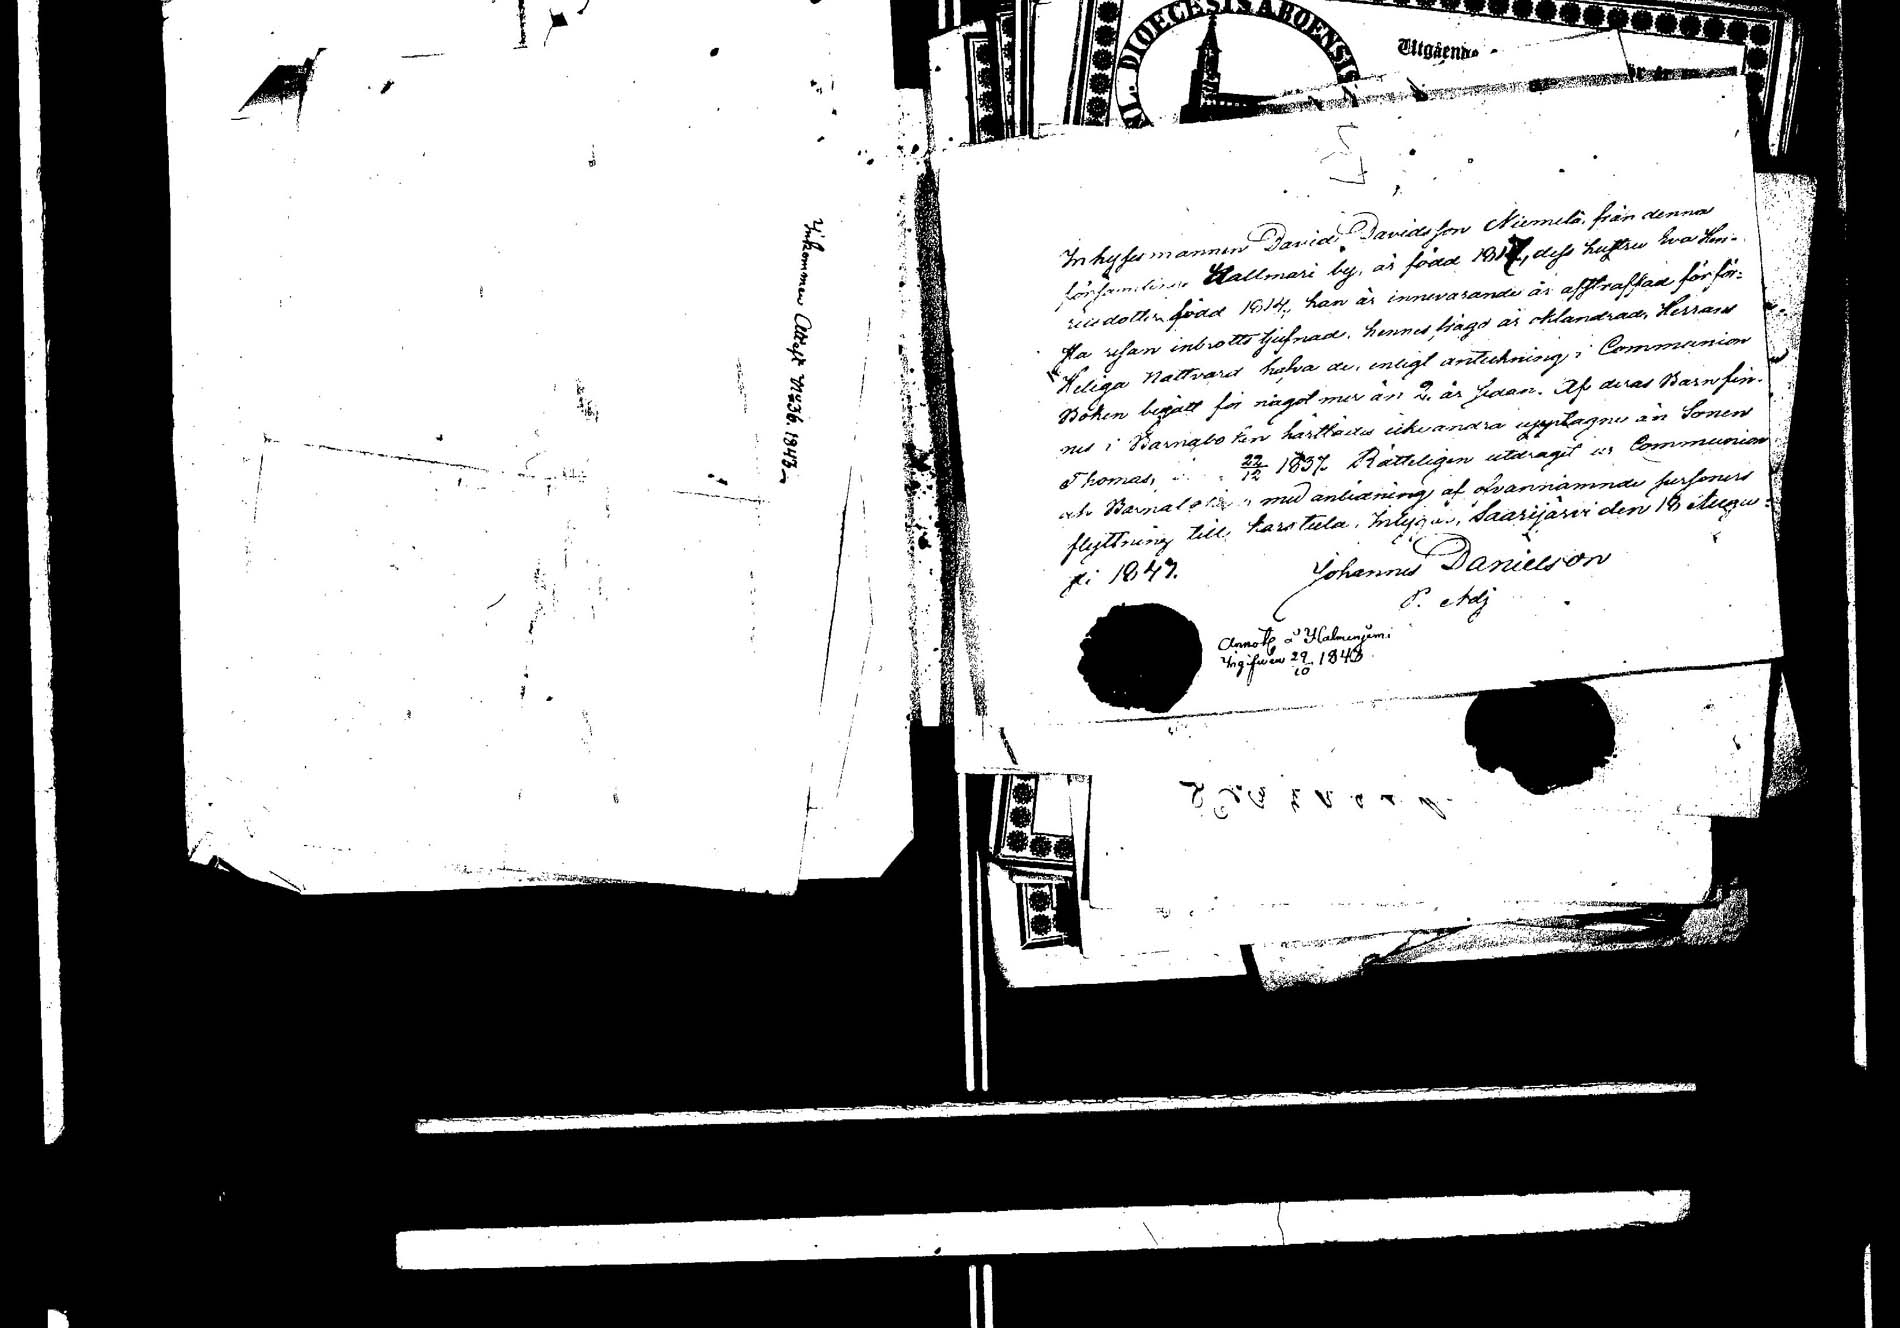 Inkommen Attest No 36. 1843.
AL. DIOECESIS ABOENSIS
Utgående
Inhysesmannen David Davidsson Niemelä, från denna
församling Kallmari by, är född 1817, dess hustru Eva Hen-
ricsdotter född 1814, han är innevarande år afstraffad för för-
sta resan inbrotts tjufnad, hennes frägd är oklandrad, Herrans
Heliga Nattvard hafva de, enligt anteckning i Communion
Boken begått för något mer än 2 år sedan. Af deras Barn fin-
nes i Barnaboken härstädes icke andra upptagne än Sonen
Thomas, 22/12 1837. Rätteligen utdraget ur Communion
och Barnaboken, med anledning af ofvannämnde personers
flyttning till Karstula, intygar, Saarijärvi den 18 Augu-
sti 1843.
Johannes Danielson
P. Adj
Annot. å
Ingifven 29/10 1843